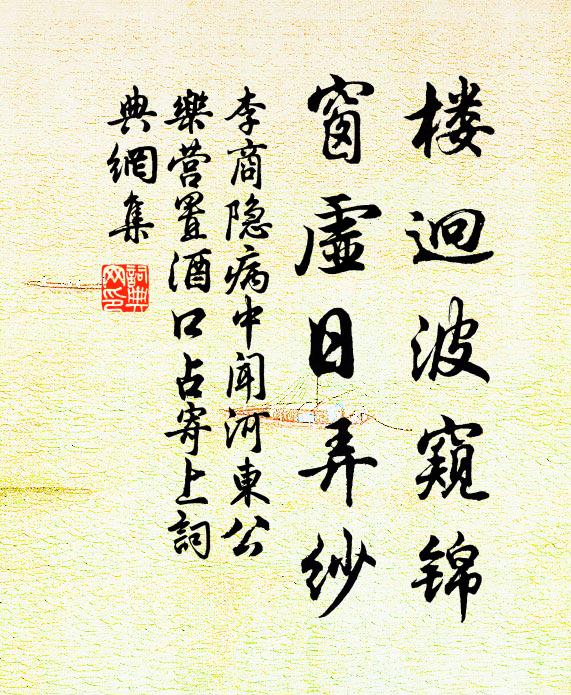 楼迥波窥锦
窗虚日弄纱
李商隐病中闻河东公
乐营置酒口占寄上詞
典網集
詞典网印